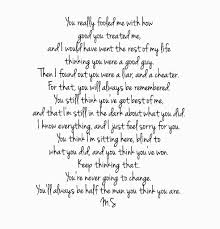 You really fooled me with how
good you treated me,
and I would have went the rest of my life
thinking you were a good guy.
Then I found out you were a liar, and a cheater.
For that, you will always be remembered.
You still think you've got best of me,
and that I'm still in the dark about what you did.
I know everything, and I just feel sorry for you.
You think I'm sitting here, blind to
what you did, and you think you've won.
Keep thinking that.
You're never going to change.
You'll always be half the man you think you are.
M.S